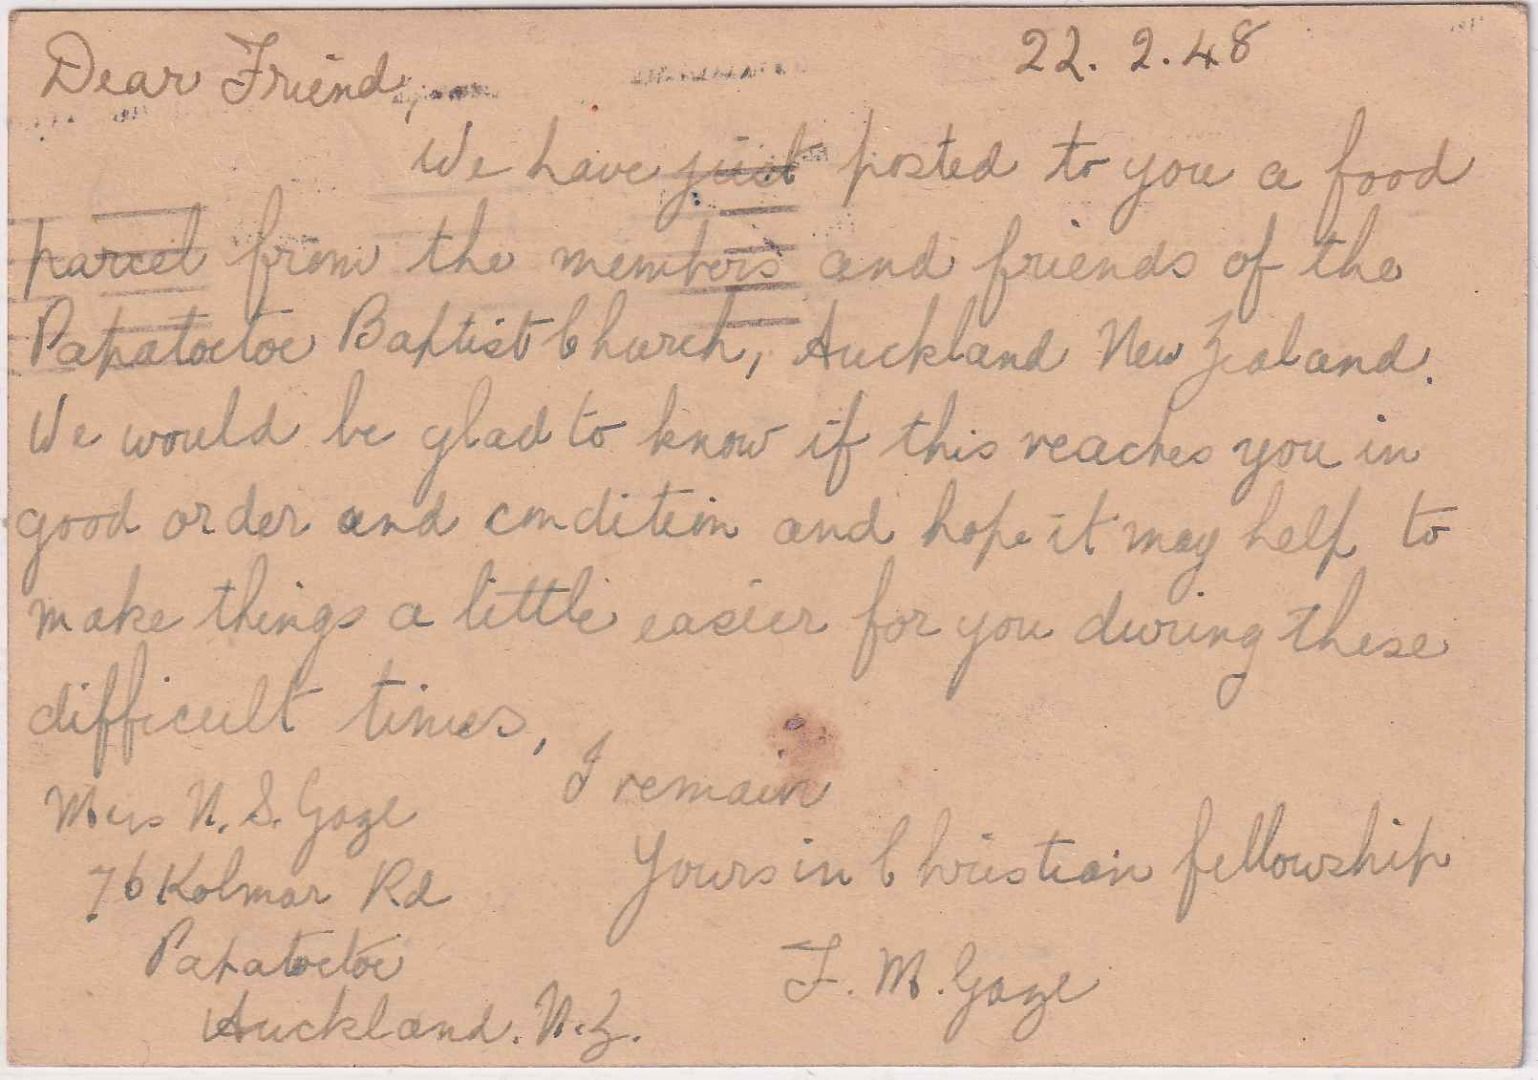 22. 2. 48
Dear Friend,
We have just posted to you a food
parcel from the members and friends of the
Papatoetoe Baptist Church, Auckland New Zealand.
We would be glad to know if this reaches you in
good order and condition and hope it may help to
make things a little easier for you during these
difficult times,
I remain
Yours in Christian fellowship
F. M. Gaze
Mrs N. S. Gaze
76 Kolmar Rd
Papatoetoe
Auckland. N.Z.